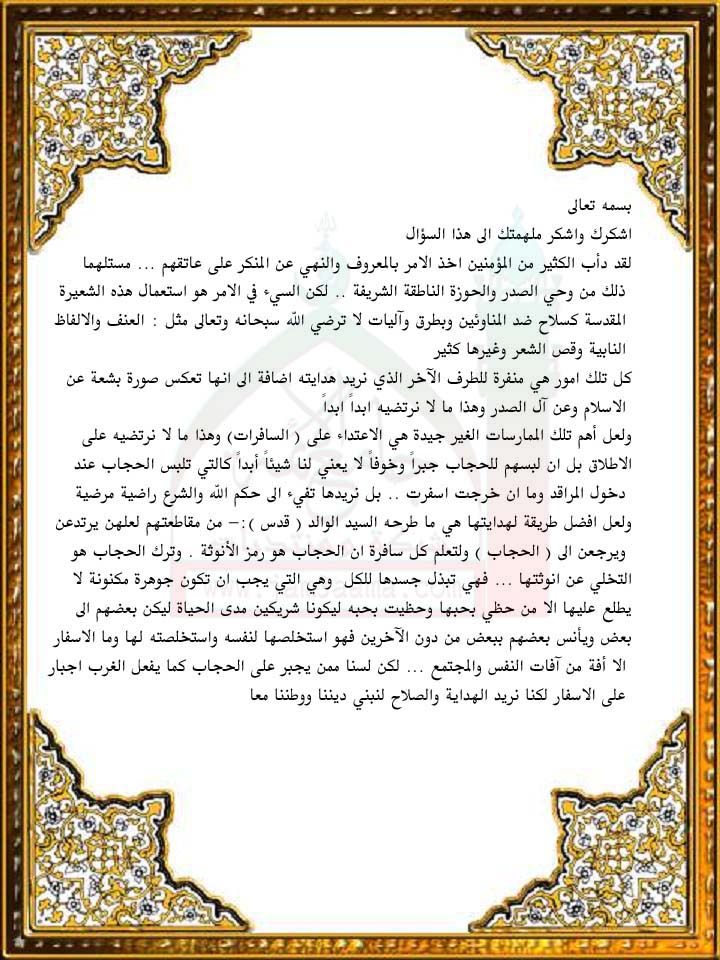 بسمه تعالى
اشكرك واشكر ملهمتك الى هذا السؤال
لقد دأب الكثير من المؤمنين اخذ الامر بالمعروف والنهي عن المنكر على عاتقهم ... مستلهما
ذلك من وحي الصدر والحوزة الناطقة الشريفة .. لكن السيء في الامر هو استعمال هذه الشعيرة
المقدسة كسلاح ضد المناوئين وبطرق وآليات لا ترضي الله سبحانه وتعالى مثل : العنف والالفاظ
النابية وقص الشعر وغيرها كثير
كل تلك امور هي منفرة للطرف الآخر الذي نريد هدايته اضافة الى انها تعكس صورة بشعة عن
الاسلام وعن آل الصدر وهذا ما لا نرتضيه ابداً ابداً
ولعل أهم تلك الممارسات الغير جيدة هي الاعتداء على ( السافرات) وهذا ما لا نرتضيه على
الاطلاق بل ان لبسهم للحجاب جبراً وخوفاً لا يعني لنا شيئاً أبداً كالتي تلبس الحجاب عند
دخول المراقد وما ان خرجت اسفرت .. بل نريدها تفيء الى حكم الله والشرع راضية مرضية
ولعل افضل طريقة لهدايتها هي ما طرحه السيد الوالد ( قدس ):– من مقاطعتهم لعلهن يرتدعن
ويرجعن الى ( الحجاب ) ولتعلم كل سافرة ان الحجاب هو رمز الأنوثة . وترك الحجاب هو
التخلي عن انوثتها ... فهي تبذل جسدها للكل وهي التي يجب ان تكون جوهرة مكنونة لا
يطلع عليها الا من حظي بحبها وحظيت بحبه ليكونا شريكين مدى الحياة ليكن بعضهم الى
بعض ويأنس بعضهم ببعض من دون الآخرين فهو استخلصها لنفسه واستخلصته لها وما الاسفار
الا أفة من آفات النفس والمجتمع ... لكن لسنا ممن يجبر على الحجاب كما يفعل الغرب اجبار
على الاسفار لكنا نريد الهداية والصلاح لنبني ديننا ووطننا معا